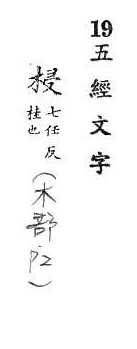 19五經文字
梫七任反
桂也
(木部P2)